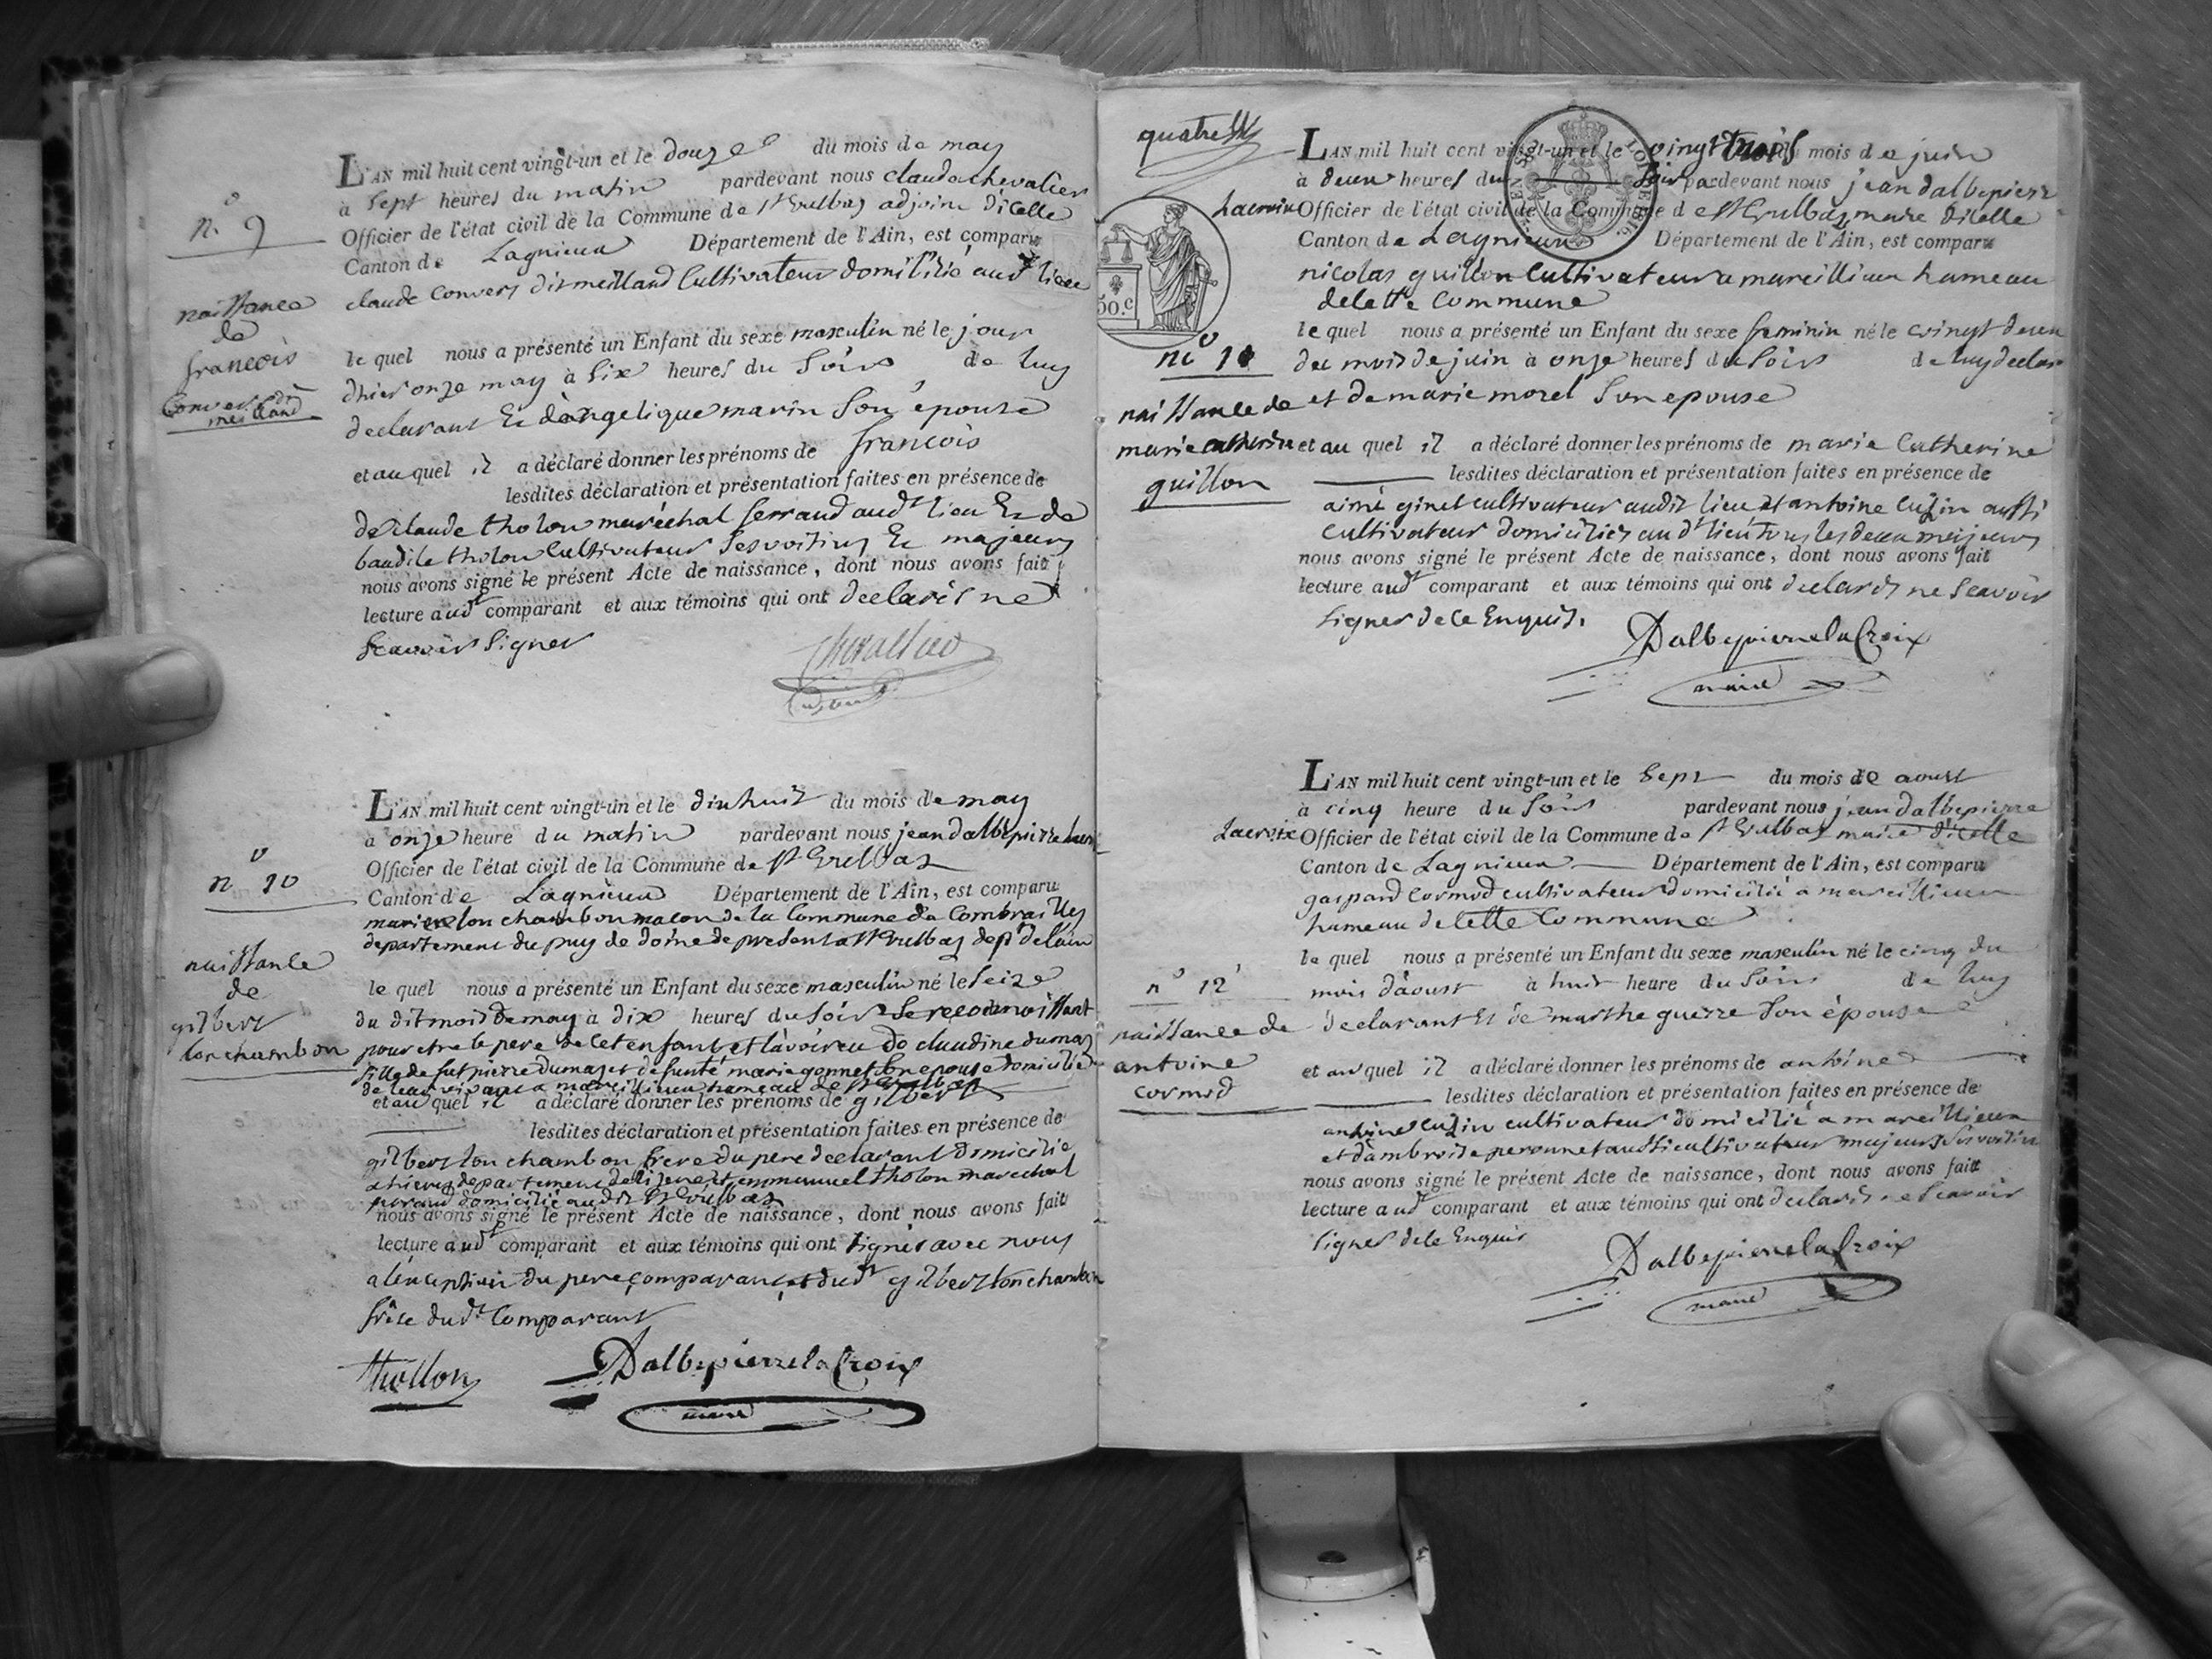 n° 9
naissance
de
francois
Convers dit
meilland
L'AN mil huit cent vingt-un et le douze du mois de may
à sept heures du matin pardevant nous claude chevalier
Officier de l'état civil de la Commune de St Vulbas adjoint dicelle
Canton de Lagnieux Département de l'Ain, est comparu
claude Convers dit meilland Cultivateur domicilié audt lieu
le quel nous a présenté un Enfant du sexe masculin né le jour
dhier onze may à six heures du soir de luy
declarant Et dangelique marin son épouse
et au quel il a déclaré donner les prénoms de francois
lesdites déclaration et présentation faites en présence de
de claude tholon maréchal ferrand audt lieu Et de
baudile tholon Cultivateur ses voisins Et majeurs
nous avons signé le présent Acte de naissance, dont nous avons fait
lecture audt comparant et aux témoins qui ont declarés ne
scavoir signer
Chevallier
n° 10
naissance
de
gilbert
lonchambon
L'AN mil huit cent vingt-un et le dix huit du mois de may
à onze heure du matin pardevant nous jean dalbepierre lacroix
Officier de l'état civil de la Commune de St Vulbas
Canton de Lagnieux Département de l'Ain, est comparu
marien lonchambon macon de la Commune de Combrailles
departement du puy de dome de present a St Vulbas dept de lain
le quel nous a présenté un Enfant du sexe masculin né le seize
du dit mois de may à dix heures du soir se reconnoissant
pour etre le pere de cet enfant et lavoir eu de claudine dumas
fille de fut pierre dumas et defunté marie gonnet son epouse domicilié
de leur vivant a marcillieux hameau de St Vulbas
et au quel il a déclaré donner les prénoms de gilbert
lesdites déclaration et présentation faites en présence de
gilbert lonchambon frere du pere declarant domicilié
departement de lizere et emmanuel tholon marechal
ferrand domicilié audit St Vulbas
nous avons signé le présent Acte de naissance, dont nous avons fait
lecture audt comparant et aux témoins qui ont signés avec nous
a l'exception du pere comparant et dudt gilbert lonchambon
frêre dudt Comparant
thollon
Dalbepierre la Croix
maire
quatre
50.c
n° 11
naissance de
marie catherine
guillon
L'AN mil huit cent vingt-un et le vingt trois mois de juin
à deux heures du soir pardevant nous jean dalbepierre
Lacroix Officier de l'état civil de la Commune de St Vulbas maire dicelle
Canton de Lagnieux Département de l'Ain, est comparu
nicolas guillon Cultivateur a marcillieux hameau
de cette Commune
le quel nous a présenté un Enfant du sexe feminin né le vingt deux
du mois de juin à onze heures du soir de luy declarant
et de marie morel son epouse
et au quel il a déclaré donner les prénoms de marie Catherine
lesdites déclaration et présentation faites en présence de
aimé ginet cultivateur audit lieu et antoine cuzin aussi
cultivateur domiciliés audt lieu tous les deux majeurs
nous avons signé le présent Acte de naissance, dont nous avons fait
lecture audt comparant et aux témoins qui ont declarés ne scavoir
signer de ce Enquis.
Dalbepierre la Croix
maire
n° 12
naissance de
antoine
cormod
L'AN mil huit cent vingt-un et le sept du mois de aoust
à cinq heure du soir pardevant nous jean dalbepierre
Lacroix Officier de l'état civil de la Commune de St Vulbas maire dicelle
Canton de Lagnieux Département de l'Ain, est comparu
gaspard Cormod cultivateur domicilié a marcillieux
hameau de cette Commune
le quel nous a présenté un Enfant du sexe masculin né le cinq du
mois d'aoust à huit heure du soir de luy
declarant Et de marthe guerre son épouse
et au quel il a déclaré donner les prénoms de antoine
lesdites déclaration et présentation faites en présence de
antoine cuzin cultivateur domicilié a marcillieux
et dambroise peronnet aussi cultivateur majeurs ses voisins
nous avons signé le présent Acte de naissance, dont nous avons fait
lecture audt comparant et aux témoins qui ont declarés ne scavoir
signer de ce Enquis
Dalbepierre la Croix
maire